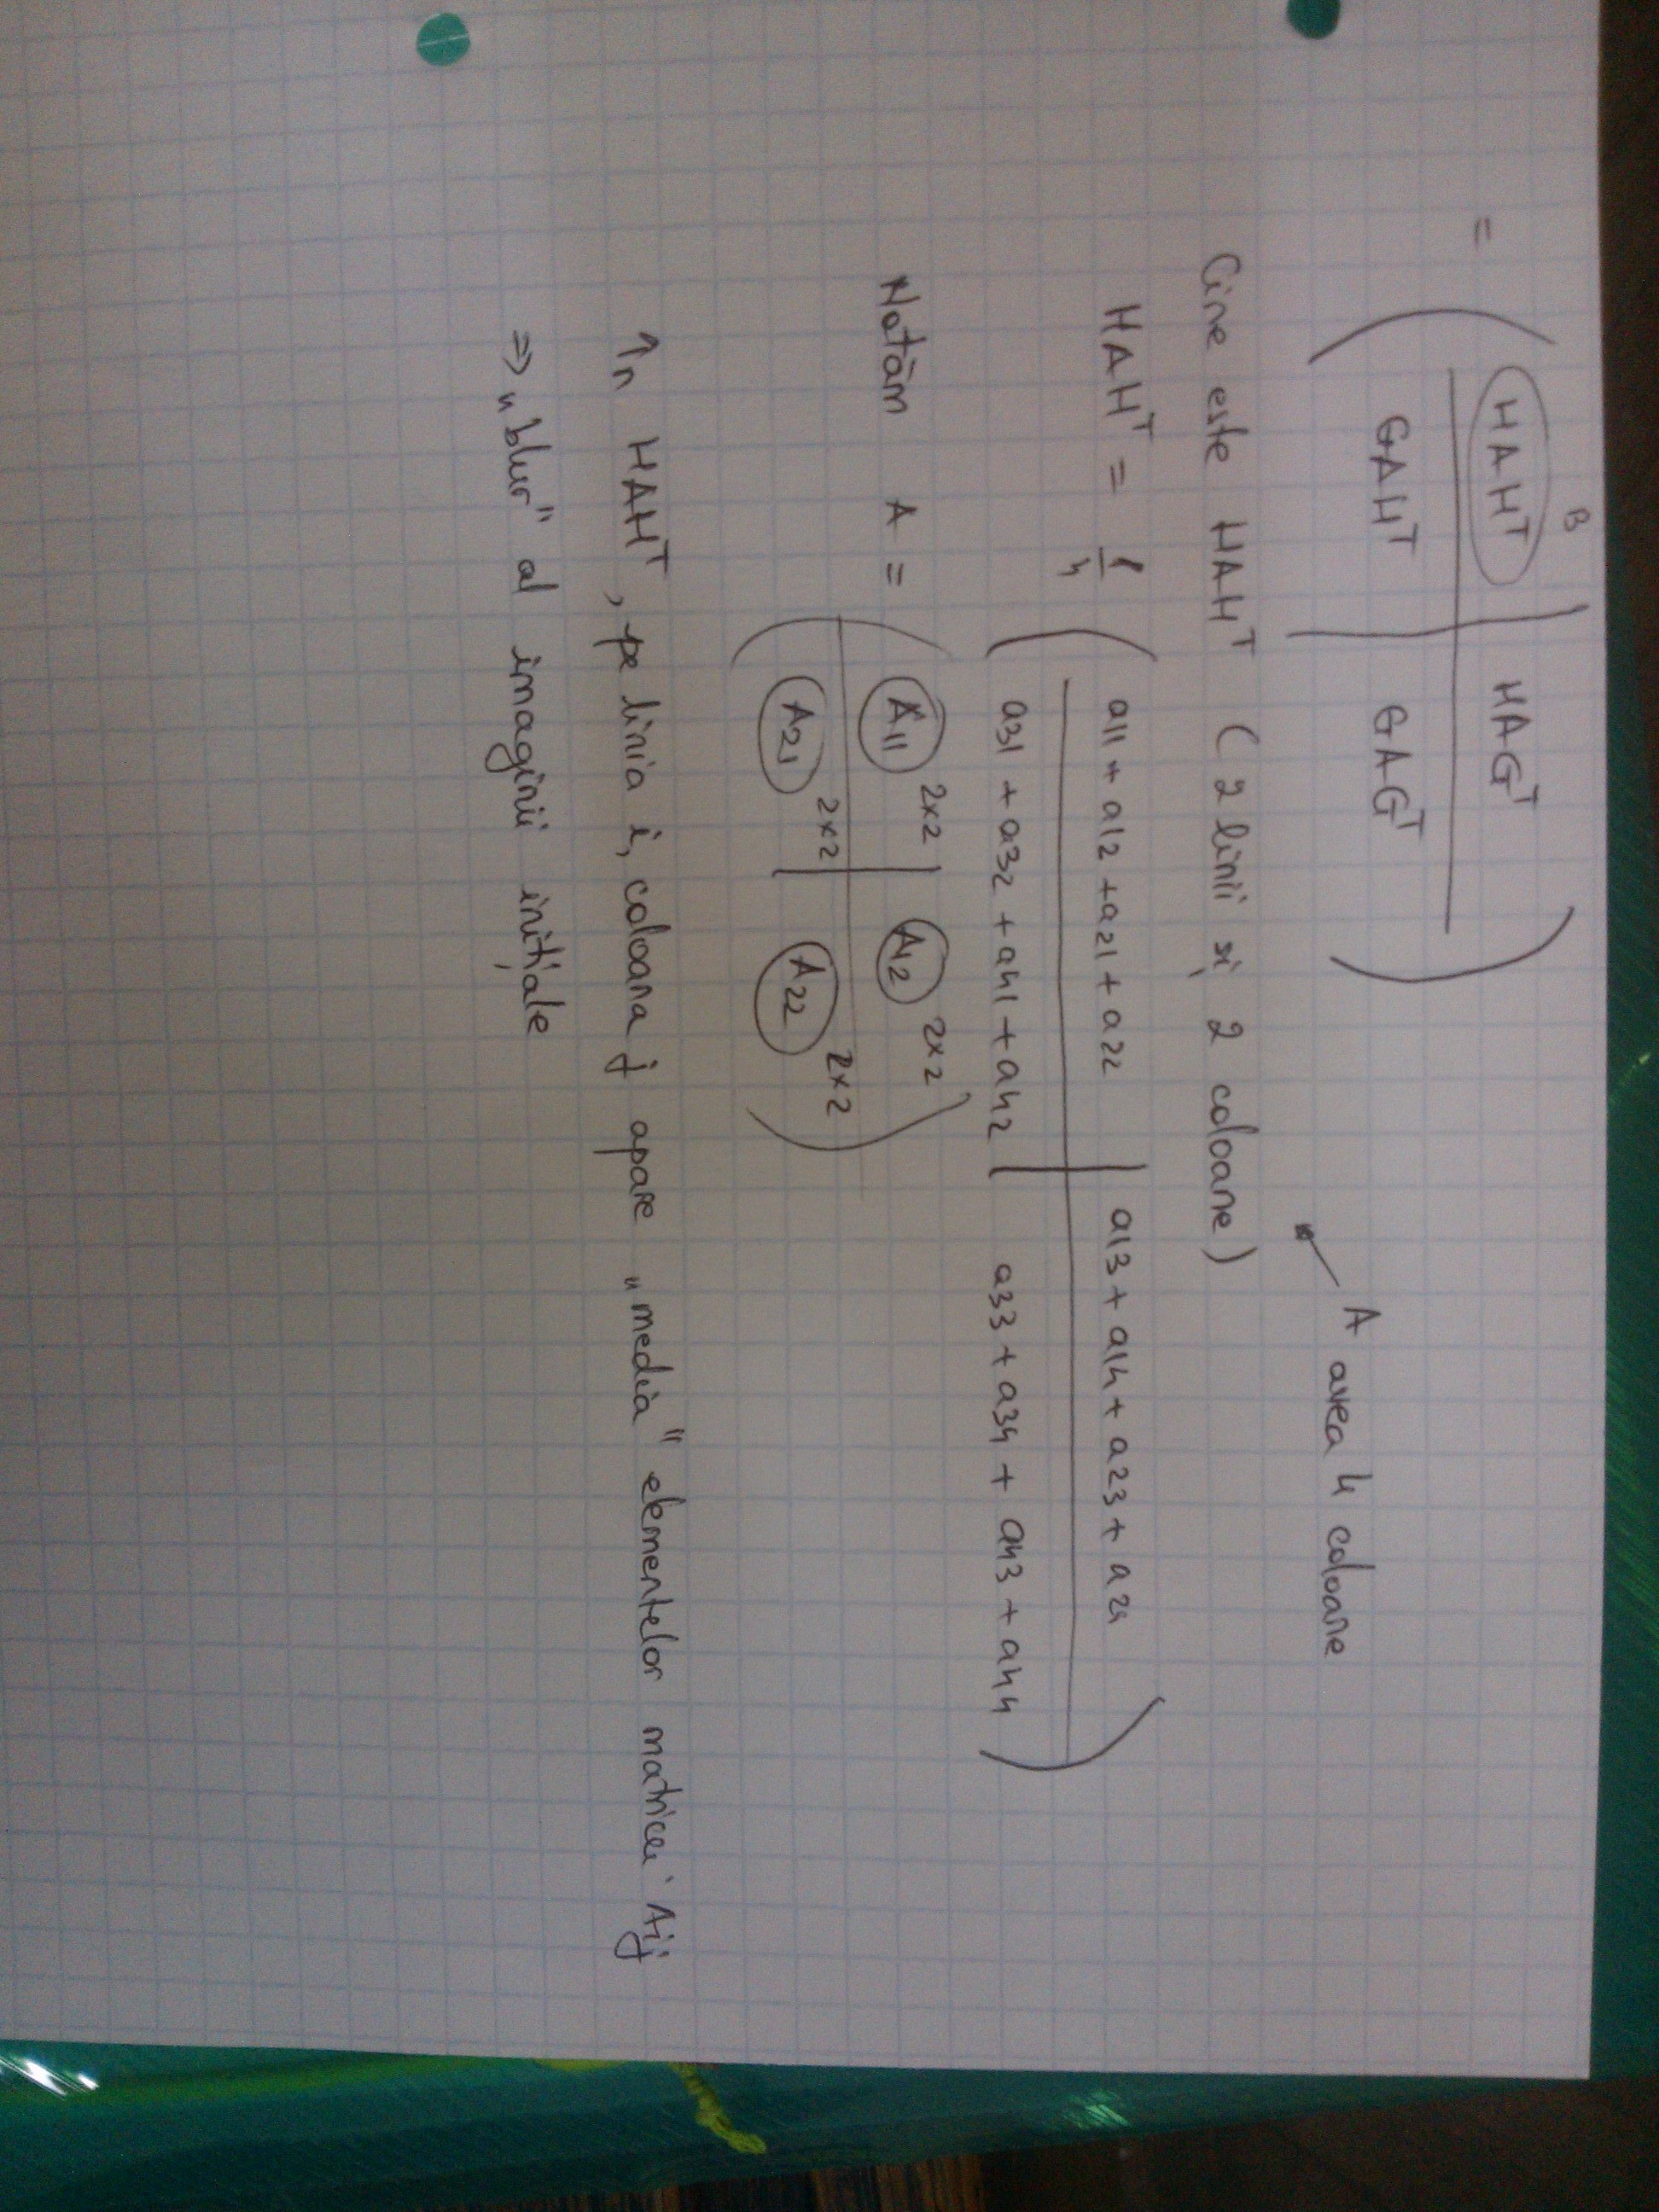 B
= ( HAHᵀ | HAGᵀ
GAHᵀ | GAGᵀ )
A avea 4 coloane
Cine este HAHᵀ (2 linii și 2 coloane)
HAHᵀ = 1/4 ( a11 + a12 + a21 + a22 | a13 + a14 + a23 + a24
a31 + a32 + a41 + a42 | a33 + a34 + a43 + a44 )
Notăm A = ( A11 2x2 | A12 2x2
A21 2x2 | A22 2x2 )
În HAHᵀ, pe linia i, coloana j apare „media" elementelor matricei Aij
=> „blur" al imaginii inițiale